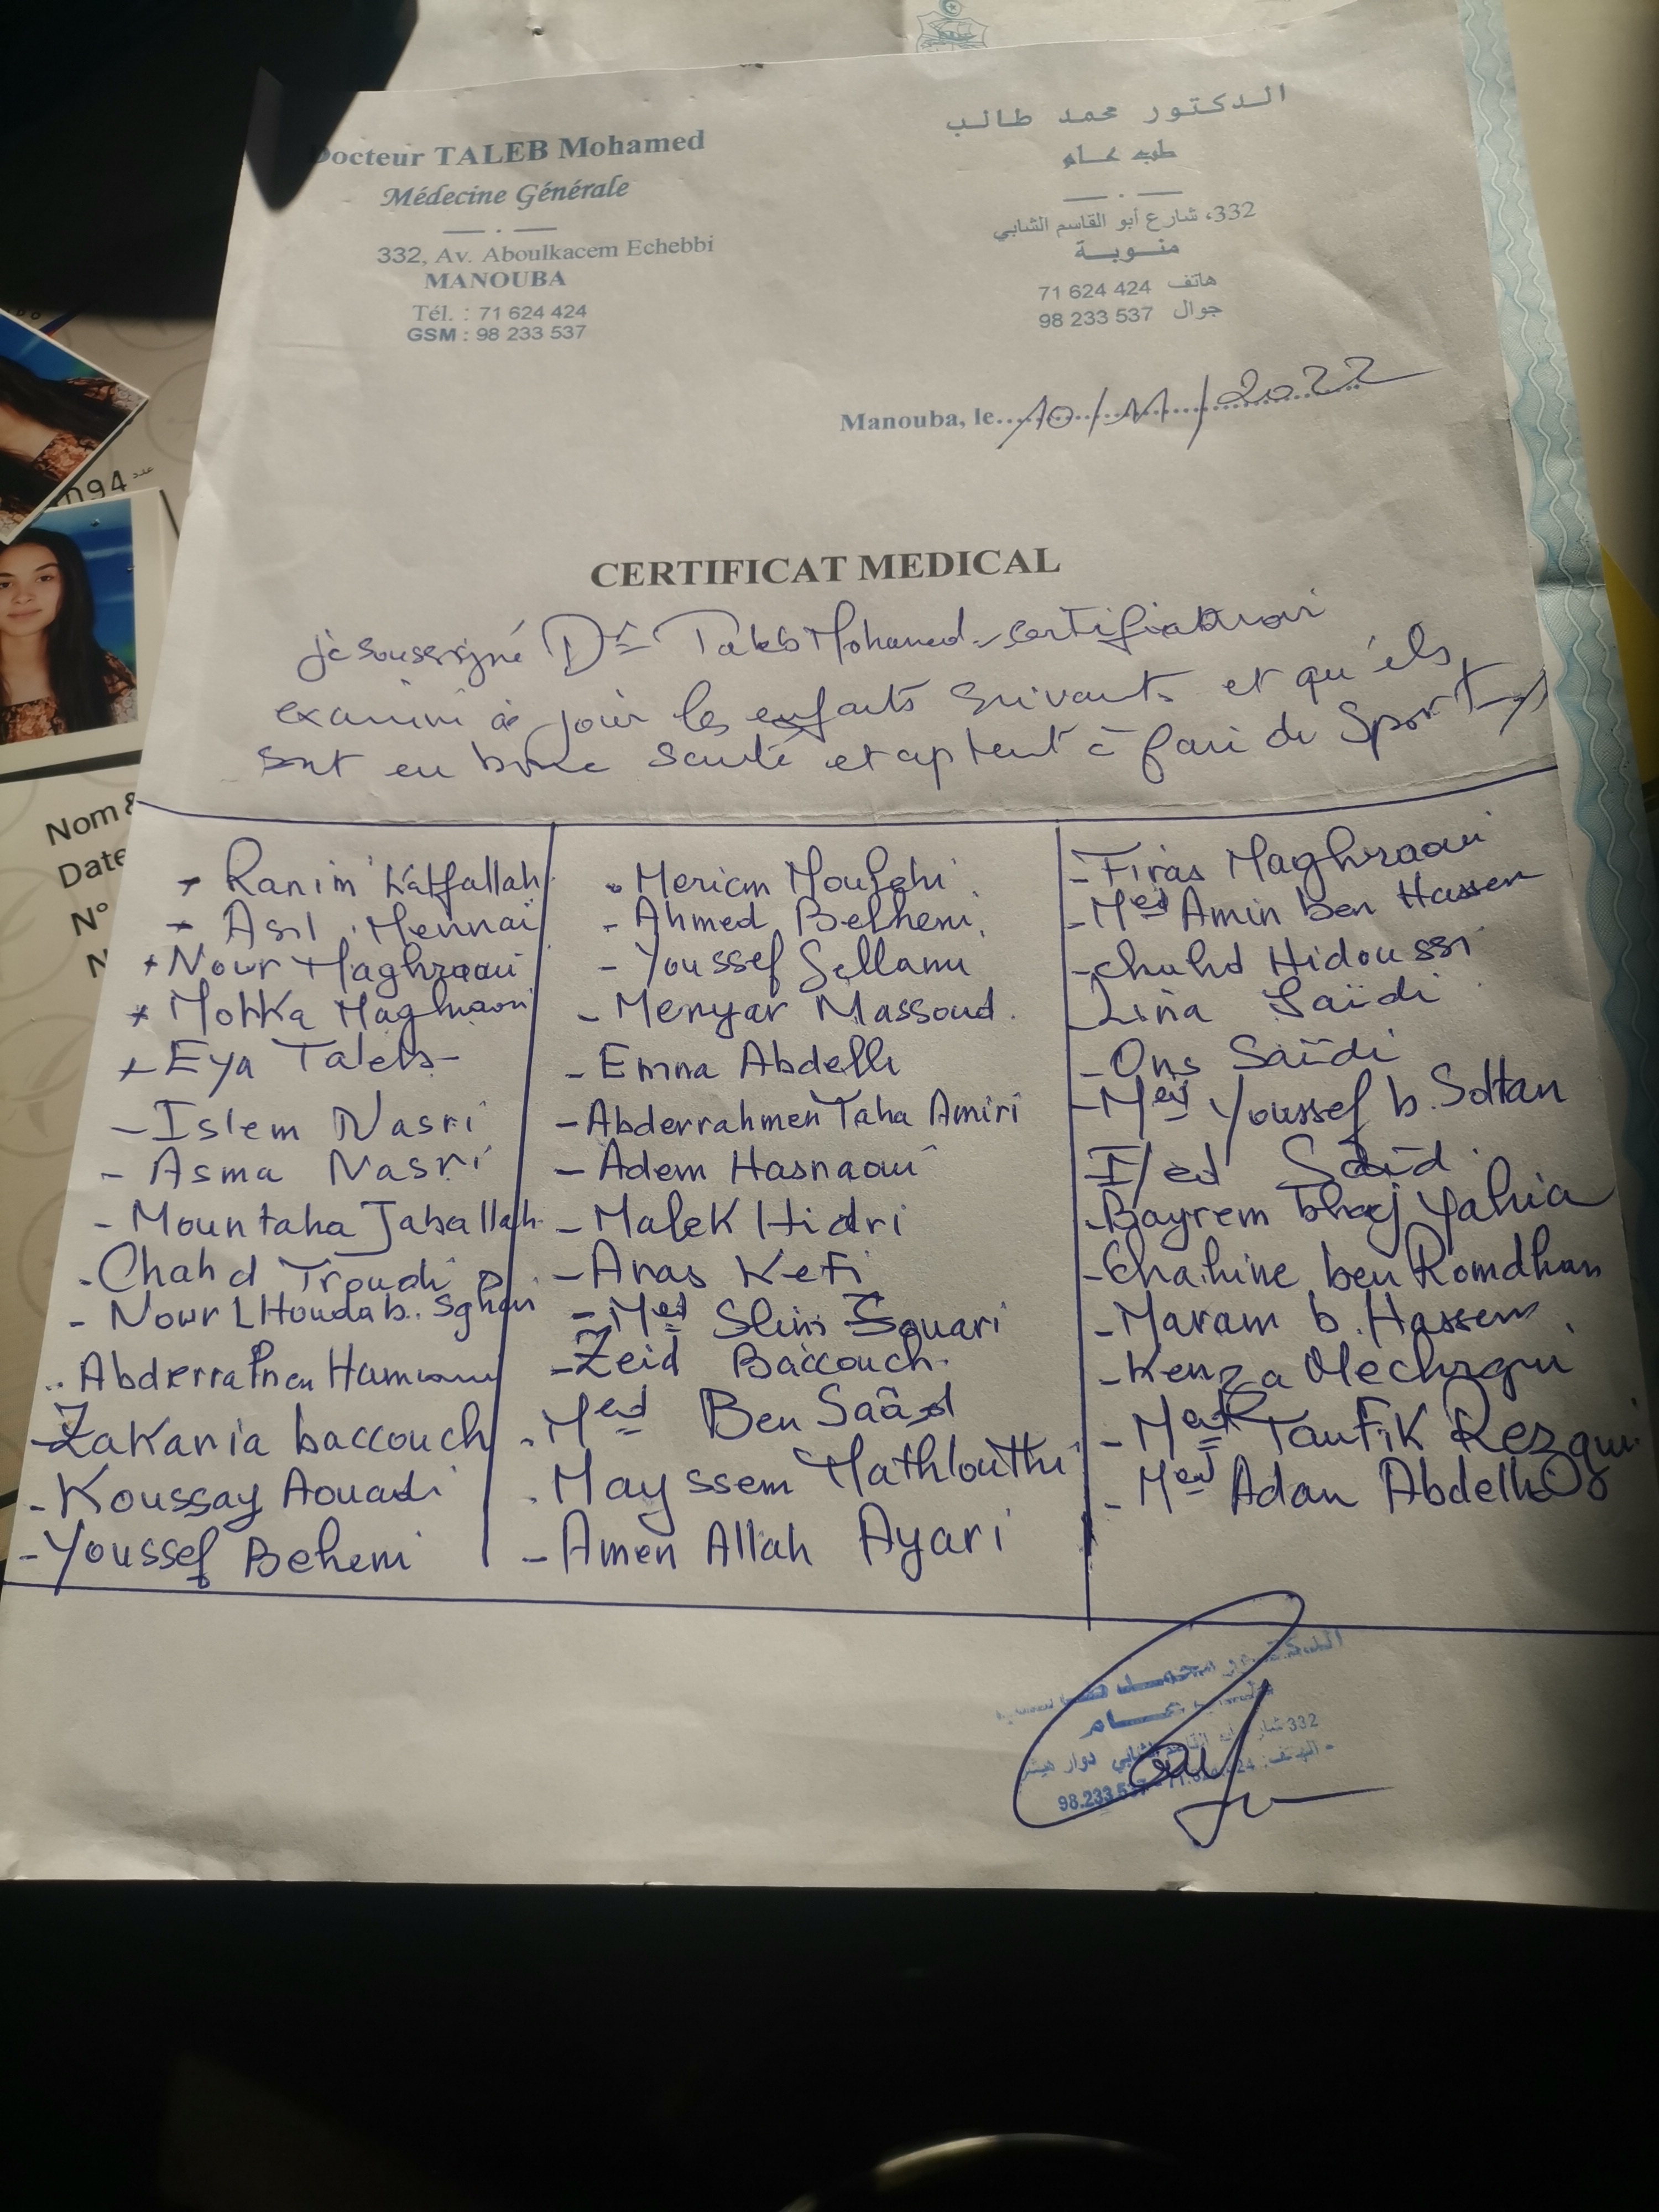 Docteur TALEB Mohamed
Médecine Générale
332, Av. Aboulkacem Echebbi
MANOUBA
Tél. : 71 624 424
GSM : 98 233 537
الدكتور محمد طالب
طب عام
332، شارع أبو القاسم الشابي
منوبة
هاتف 71 624 424
جوال 98 233 537
Manouba, le 10/11/2022
CERTIFICAT MEDICAL
je soussigné Dr Taleb Mohamed certifie avoir
examiné ce jour les enfants suivants et qu'ils
sont en bonne santé et aptent à faire du Sport
Ranim Katfallah
Asil Mennaï
Nour Maghraoui
Mohka Maghraoui
Eya Taleb
- Islem Nasri
- Asma Nasri
- Mountaha Jaballah
- Chahd Troudi
- Nour L Houda b. Sghair
Abderrahmen
- Zakaria baccouch
- Koussay Aouadi
- Youssef Behemi
- Meriem
- Ahmed Belhemi
- Youssef Sellami
- Menyar Massoud
- Emna Abdelli
- Abderrahmen Taha Amiri
- Adem Hasnaoui
- Malek Hidri
- Anas Kefi
- Med Slim Souari
- Zeid Baccouch
- Med Ben Saâd
- Mayssem Mathlouthi
- Amen Allah Ayari
- Firas Maghraoui
- Med Amin ben Hassen
- Chahd Hidoussi
- Lina Saïdi
- Ons Saïdi
- Med Youssef b. Soltan
Saïd
- Bayrem bhaj Yahia
- Chahine ben Romdhan
- Maram b. Hassen
- Kenza Mechrgui
- Med Taufik Rezgui
- Med Adan Abdelli
عام
332
98.233.537
Nom &
Date
N°
N
094 عدد